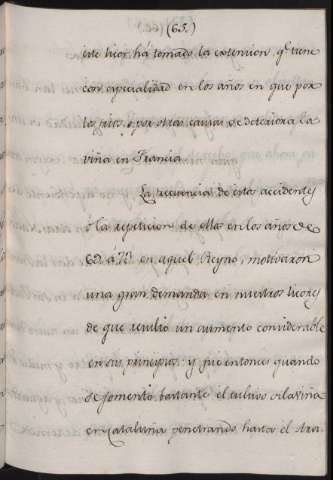 (65.)
este licor, há tomado la extencion, qe. tiene
con especialidad en los años en que por
los frios, ò por otras causas se deteriora la
viña en Francia.
La frecuencia de estos accidentes
ò la repeticion de ellos en los años de
69 à 73 en aquel Reyno, motivaron
una gran demanda en nuestros licores
de que resultò un aumento considerable
en sus principios: y fue entonces quando
se fomentò bastante el cultivo de la viña
en Cataluña penetrando hasta el